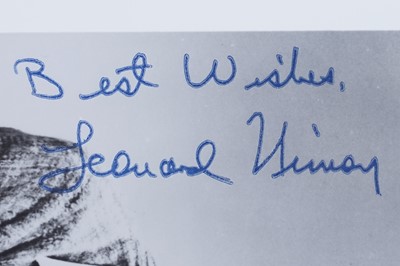 Best Wishes,
Leonard Nimoy